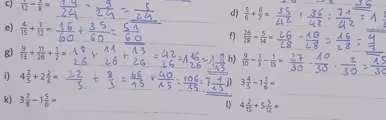 c)
d) 5/6 + 6/7 = 35/42 + 36/42 = 71/42 = 1
e) 4/15 + 7/12 = 16/60 + 35/60 = 51/60
f) 26/28 - 5/14 = 26/28 - 10/28 = 16/28 = 4/7
g) 9/13 + 11/26 + 1/2 = 18/26 + 11/26 + 13/26 = 42/26 = 1 16/26 = 1 8/13
h) 9/10 - 1/3 - 1/15 = 27/30 - 10/30 - 2/30 = 15/30
i) 4 2/5 + 2 2/3 = 32/5 + 8/3 = 66/15 + 40/15 = 106/15 = 7 1/15
j) 3 4/5 - 1 1/6 =
k) 3 7/8 - 1 5/6 =
l) 4 2/15 + 5 5/12